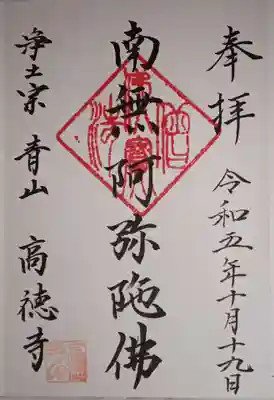 奉拝
令和五年十月十九日
南無阿弥陀佛
浄土宗 青山 高徳寺